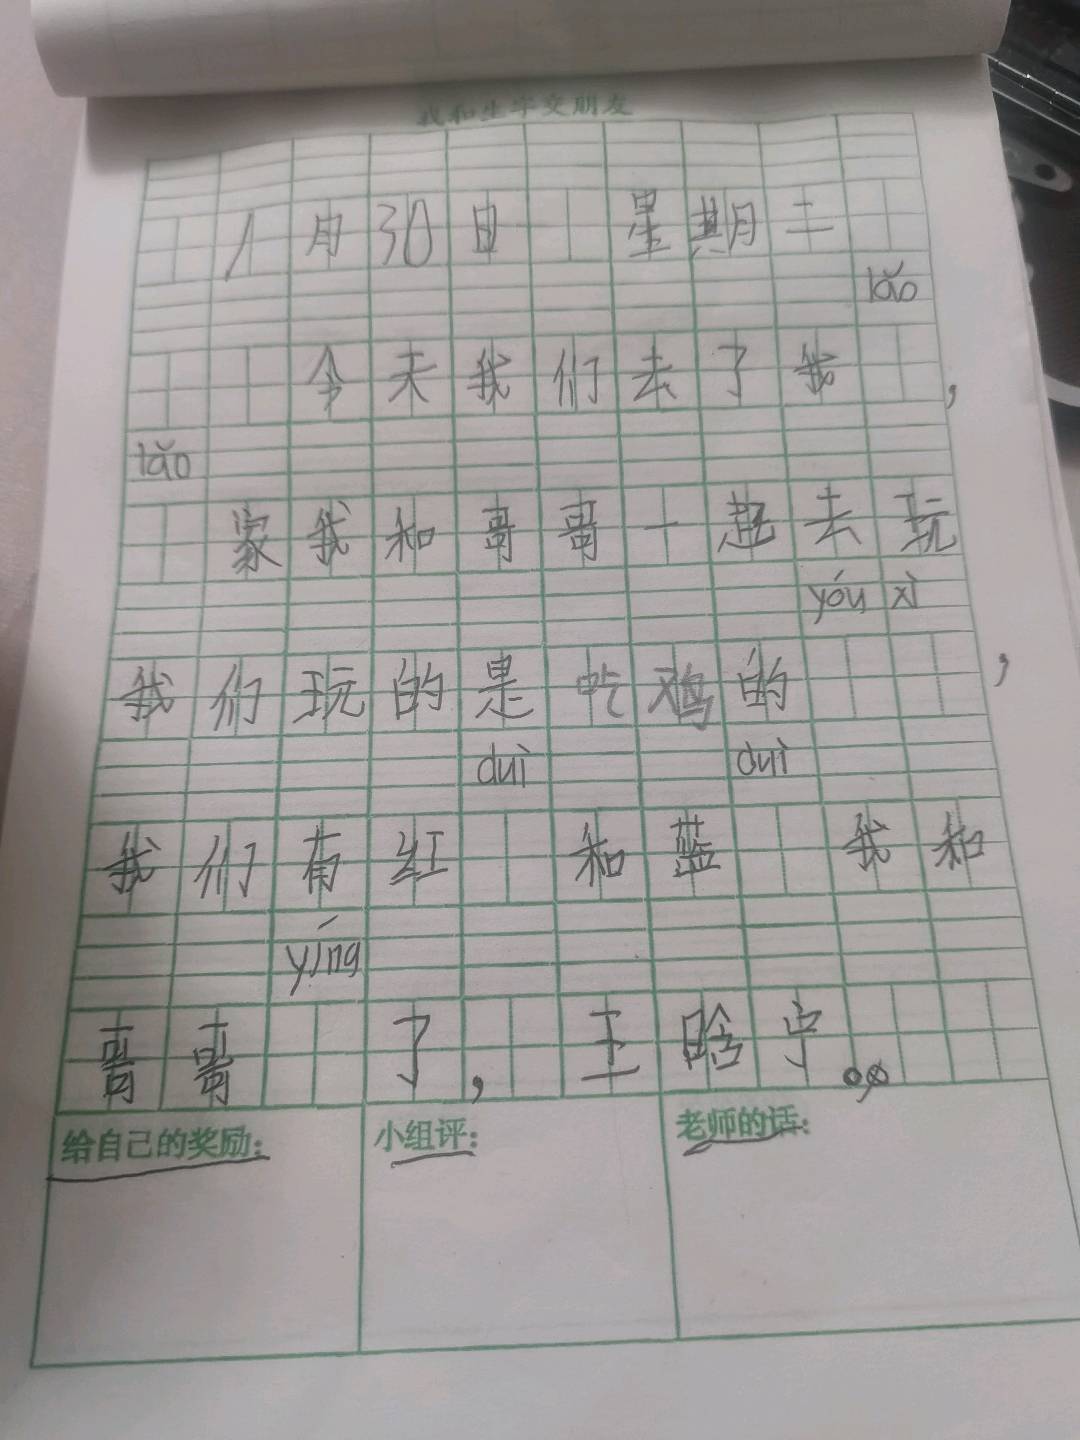 我和生字交朋友
1月30日 星期二
lǎo
今天我们去了我,
lǎo
家我和哥哥一起去玩
yóu xì
我们玩的是吃鸡的,
duì duì
我们有红 和蓝 我和
yíng
哥哥 了, 王晗宁。
给自己的奖励:
小组评:
老师的话: